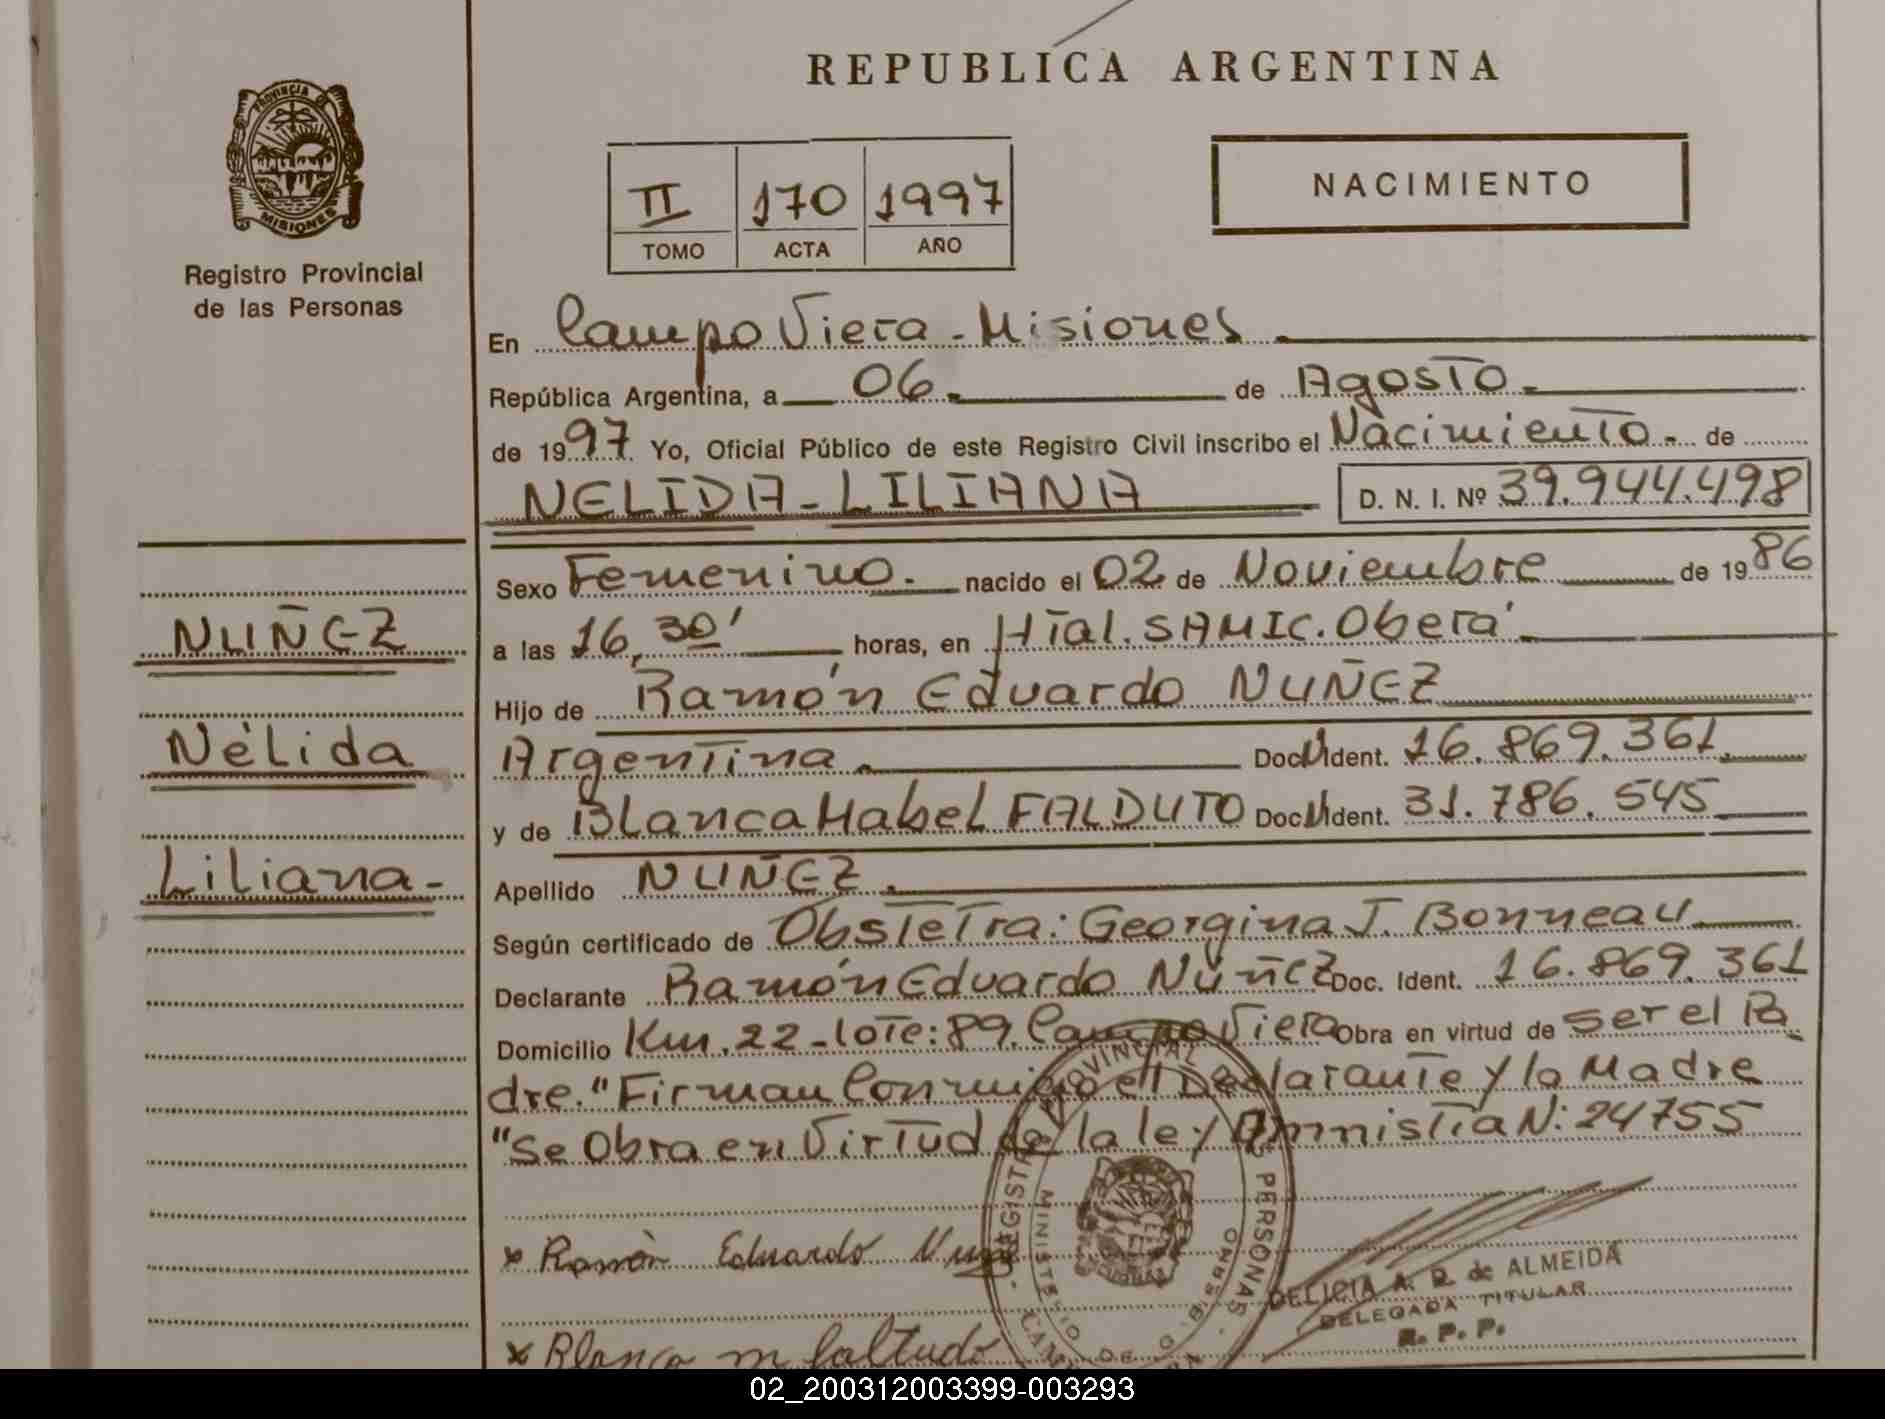 REPUBLICA ARGENTINA
PROVINCIA DE
MISIONES
Registro Provincial
de las Personas
II 170 1997
TOMO ACTA AÑO
NACIMIENTO
En Campo Viera - Misiones.
República Argentina, a 06. de Agosto.
de 1997 Yo, Oficial Público de este Registro Civil inscribo el Nacimiento. de
NELIDA - LILIANA D. N. I. Nº 39.944.498
Sexo Femenino. nacido el 02 de Noviembre de 1986
a las 16,30' horas, en Htal. SAMIC. Oberá.
Hijo de Ramón Eduardo NUÑEZ
Argentina. Doc. Ident. 16.869.361.
y de Blanca Mabel FALDUTO Doc. Ident. 31.786.545
Apellido NUÑEZ.
Según certificado de Obstetra: Georgina J. Bonneau
Declarante Ramón Eduardo Nuñez Doc. Ident. 16.869.361
Domicilio Km. 22 - lote: 89. Campo Viera Obra en virtud de ser el Pa
dre. "Firman Conmigo el Declarante y la Madre
"Se Obra en Virtud de la ley Amnistia N: 24755
NUÑEZ
Nélida
Liliana -
x Ramón Eduardo Nuñez
x Blanca m faltudo
REGISTRO PROVINCIAL DE LAS PERSONAS
MINISTERIO DE G.
DELICIA A. R. de ALMEIDA
DELEGADA TITULAR
R. P. P.
02_200312003399-003293